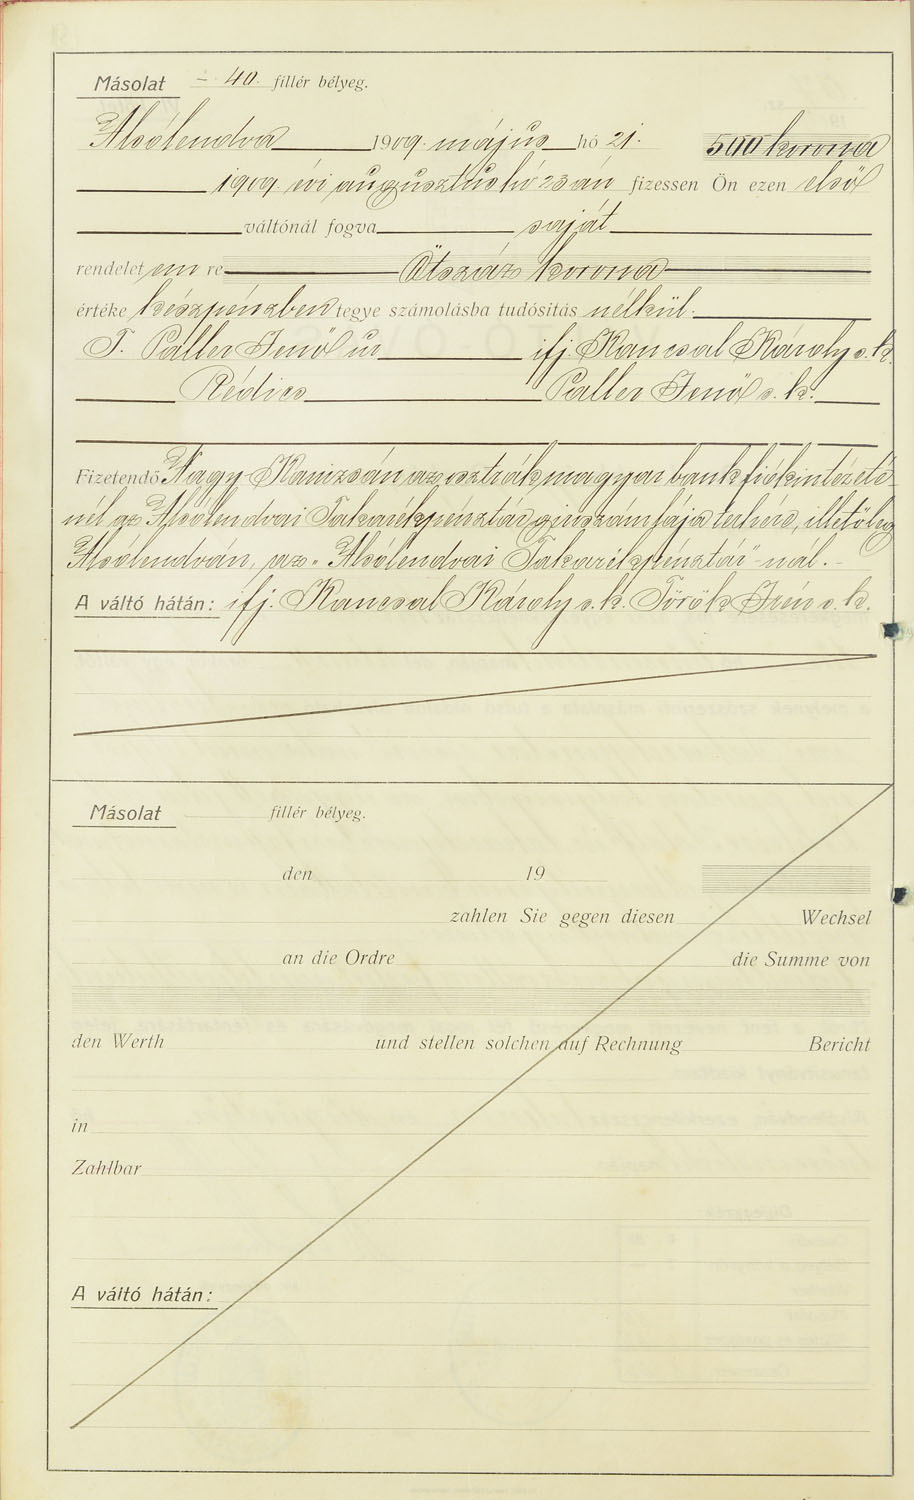 Másolat – 40. fillér bélyeg.
Alsólendva 1909. május hó 21. 500 korona
1909. évi augusztus hó 23án fizessen Ön ezen első
váltónál fogva saját
rendeletem re Ötszáz korona
értéke készpénzben tegye számolásba tudósítás nélkül.
T. Paller Jenő úr ifj. Kancsal Károly s. k.
Rédics Paller Jenő s. k.
Fizetendő Nagy-Kanizsán az osztrák magyar bank fiókintézeté-
nél az Alsólendvai Takarékpénztár girószámlája terhére, illetőleg
Alsólendván, az „Alsólendvai Takarékpénztár"-nál. –
A váltó hátán: ifj. Kancsal Károly s. k. Török Irén s. k.
Másolat fillér bélyeg.
den 19
zahlen Sie gegen diesen Wechsel
an die Ordre die Summe von
den Werth und stellen solchen auf Rechnung Bericht
in
Zahlbar
A váltó hátán: